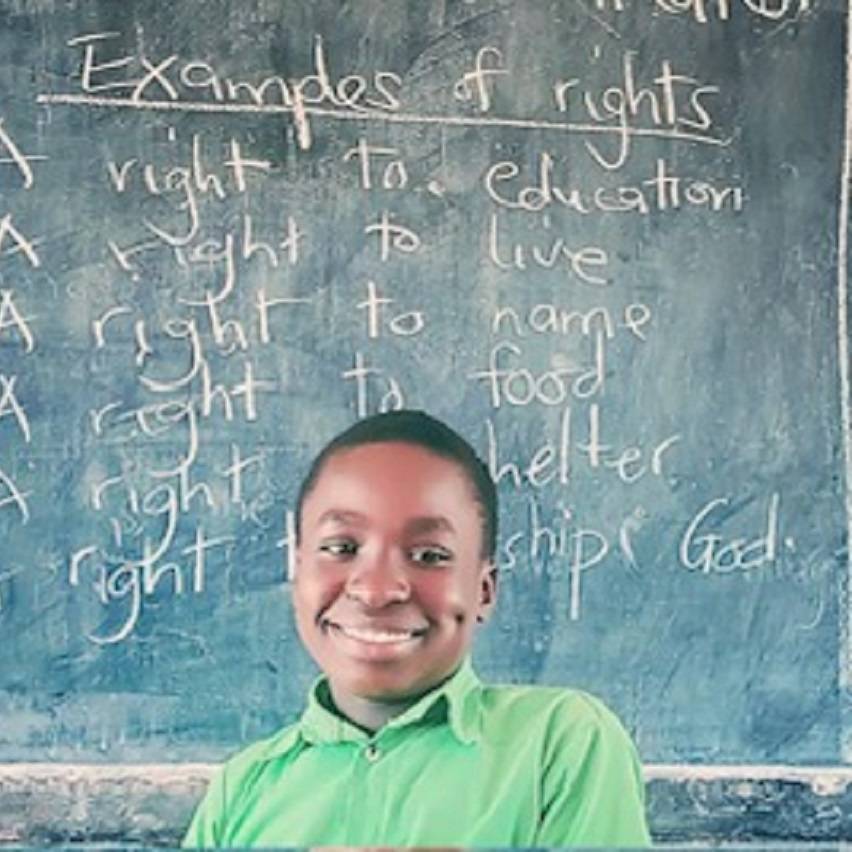 Examples of rights
A right to. education
A right to live
A right to name
A right to food
A right helter
right ship God.